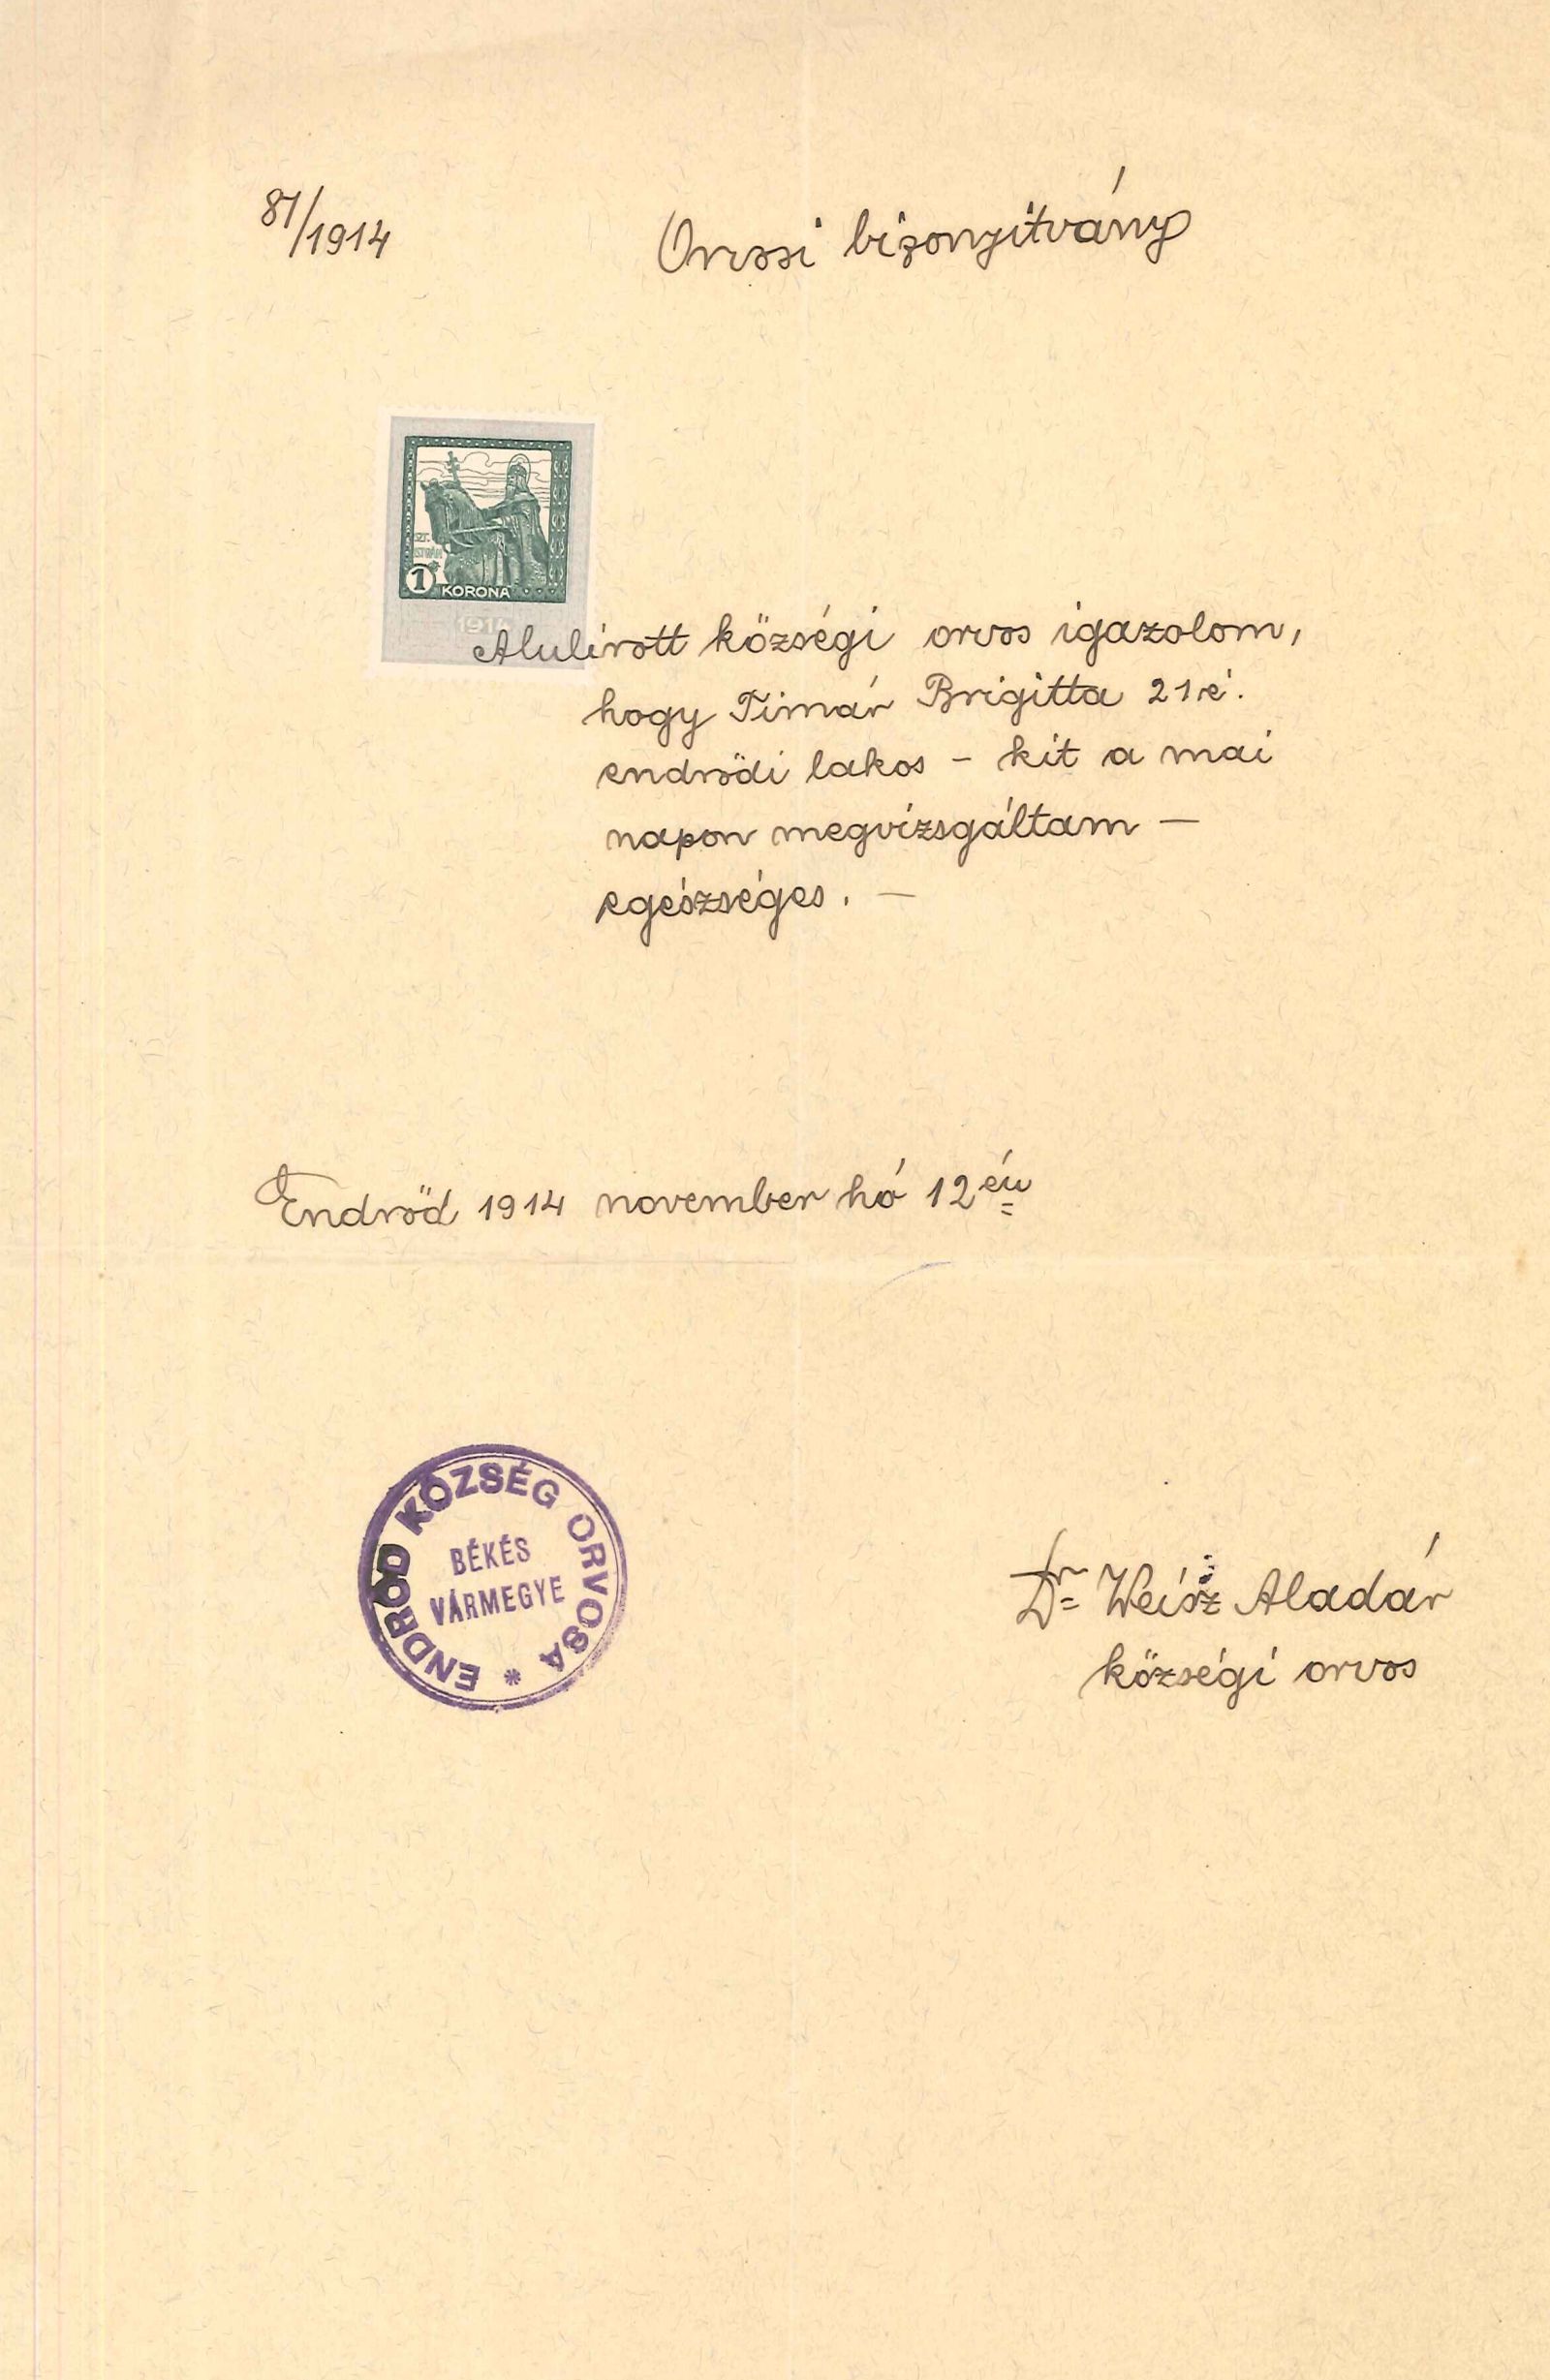 81/1914
Orvosi bizonyitvány
SZT.
ISTVÁN
1 KORONA
1914
Alulirott községi orvos igazolom,
hogy Timár Brigitta 21 é.
endrődi lakos – kit a mai
napon megvizsgáltam –
egészséges. –
Endrőd 1914 november hó 12 én
ENDRŐD KÖZSÉG ORVOSA *
BÉKÉS
VÁRMEGYE
Dr Weisz Aladár
községi orvos